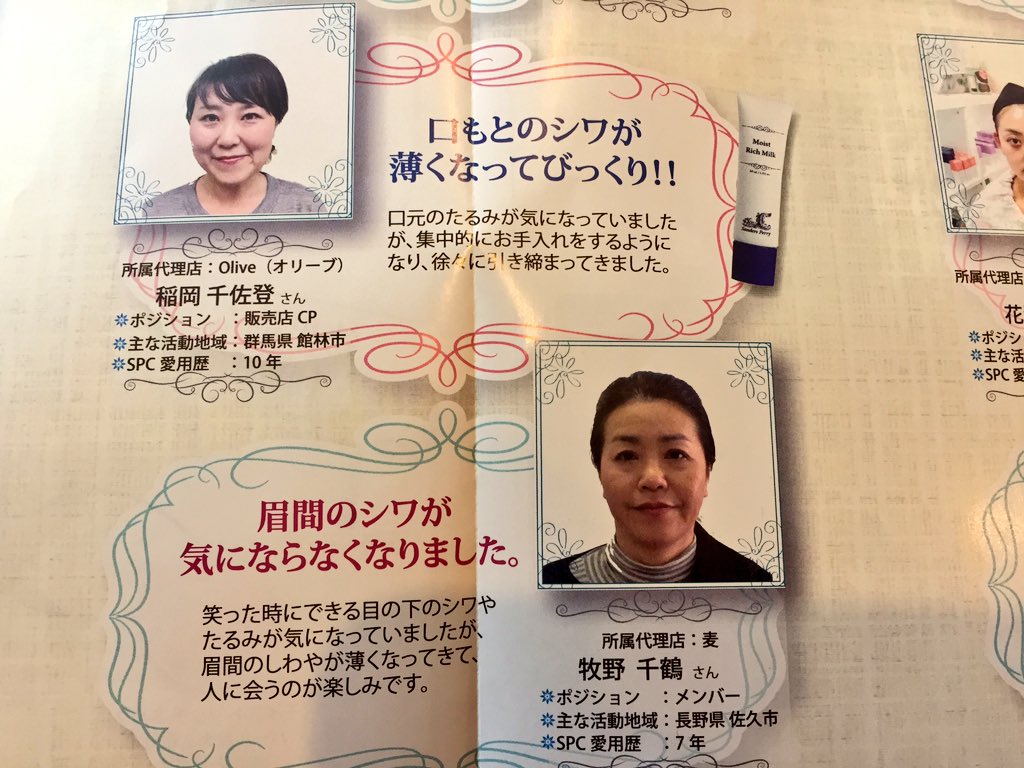 口もとのシワが
薄くなってびっくり!!
口元のたるみが気になっていました
が、集中的にお手入れをするように
なり、徐々に引き締まってきました。
Moist
Rich Milk
Sanders Perry
所属代理店：Olive（オリーブ）
稲岡 千佐登 さん
❋ポジション　：販売店 CP
❋主な活動地域：群馬県 館林市
❋SPC 愛用歴　：10 年
眉間のシワが
気にならなくなりました。
笑った時にできる目の下のシワや
たるみが気になっていましたが、
眉間のしわやが薄くなってきて、
人に会うのが楽しみです。
所属代理店：麦
牧野 千鶴 さん
❋ポジション　：メンバー
❋主な活動地域：長野県 佐久市
❋SPC 愛用歴　：7 年
所属代理店
花
❋ポジシ
❋主な活
❋SPC 愛